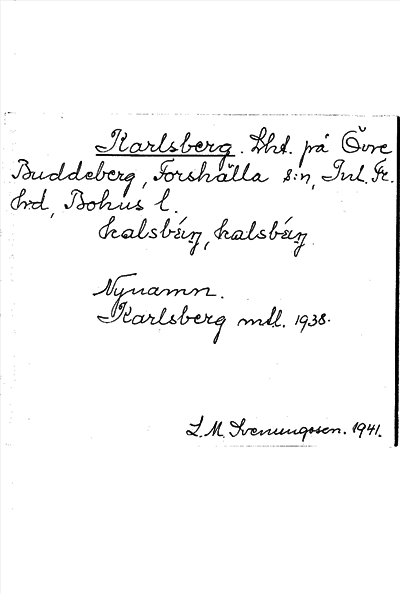 Karlsberg. Lht. på Övre
Buddeberg, Forshälla s:n, Inl. Fr.
hd, Bohus l.
kalsbáŋ, kalsbáŋ
Nynamn.
Karlsberg mtl. 1938.
L. M. Svenungsson. 1941.